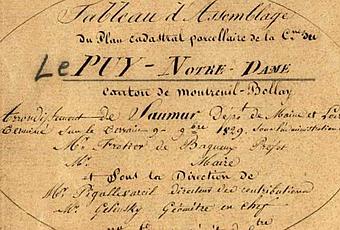 Tableau d'Assemblage
du Plan cadastral parcellaire de la Cne de
Le PUY - NOTRE - DAME
canton de Montreuil-Bellay
Arrondissement de Saumur Dept de Maine et Loire
Terminé sur le Terrain 9 1829. Sous l'administration
Mr. Frotier de Bagneux Préfet
Mr. Maire
et Sous la Direction de
Mr. directeur des contributions
Mr. Gelinsky Géomètre en chef